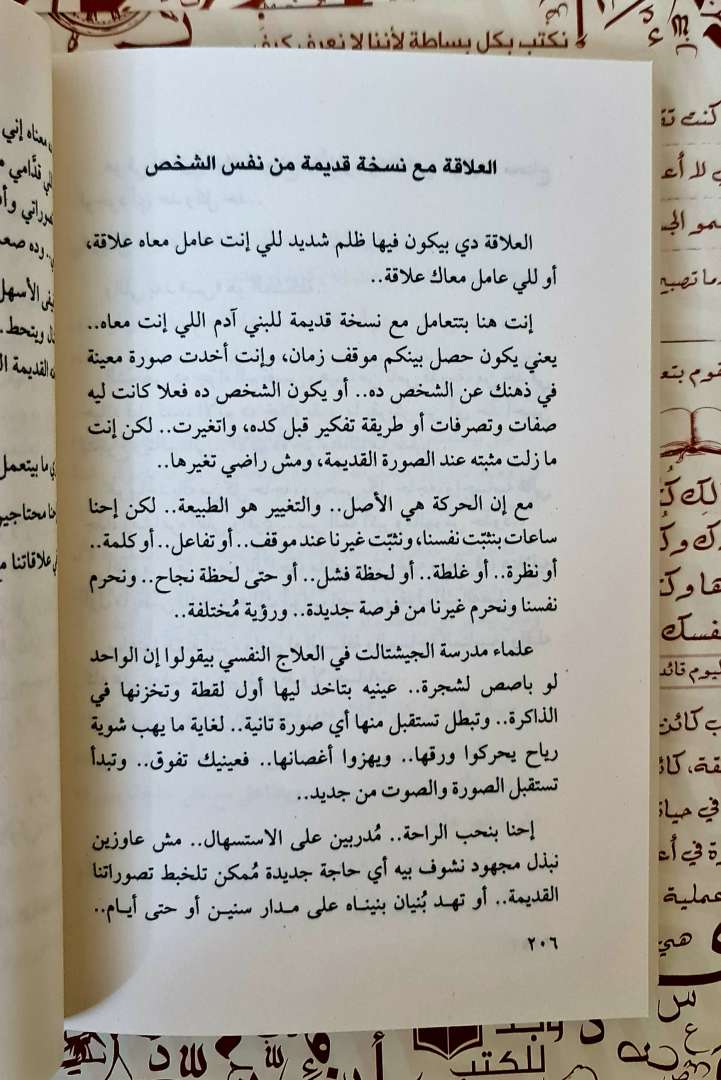 نكتب بكل بساطة لأننا لا نعرف كيف
العلاقة مع نسخة قديمة من نفس الشخص
العلاقة دي بيكون فيها ظلم شديد للي إنت عامل معاه علاقة،
أو للي عامل معاك علاقة..
إنت هنا بتتعامل مع نسخة قديمة للبني آدم اللي إنت معاه..
يعني يكون حصل بينكم موقف زمان، وإنت أخدت صورة معينة
في ذهنك عن الشخص ده.. أو يكون الشخص ده فعلا كانت ليه
صفات وتصرفات أو طريقة تفكير قبل كده، واتغيرت.. لكن إنت
ما زلت مثبته عند الصورة القديمة، ومش راضي تغيرها..
مع إن الحركة هي الأصل.. والتغيير هو الطبيعة.. لكن إحنا
ساعات بنثبّت نفسنا، ونثبّت غيرنا عند موقف.. أو تفاعل.. أو كلمة..
أو نظرة.. أو غلطة.. أو لحظة فشل.. أو حتى لحظة نجاح.. ونحرم
نفسنا ونحرم غيرنا من فرصة جديدة.. ورؤية مُختلفة..
علماء مدرسة الجيشتالت في العلاج النفسي بيقولوا إن الواحد
لو باصص لشجرة.. عينيه بتاخد ليها أول لقطة وتخزنها في
الذاكرة.. وتبطل تستقبل منها أي صورة تانية.. لغاية ما يهب شوية
رياح يحركوا ورقها.. ويهزوا أغصانها.. فعينيك تفوق.. وتبدأ
تستقبل الصورة والصوت من جديد..
إحنا بنحب الراحة.. مُدربين على الاستسهال.. مش عاوزين
نبذل مجهود نشوف بيه أي حاجة جديدة مُمكن تلخبط تصوراتنا
القديمة.. أو تهد بُنيان بنيناه على مدار سنين أو حتى أيام..
٢٠٦
معناه إني
وده صعب
الأسهل
ويتحط.
القديمة
ما بيتعمل
محتاجين
علاقاتنا
كنت
اليوم
عملية
هي
للكتب